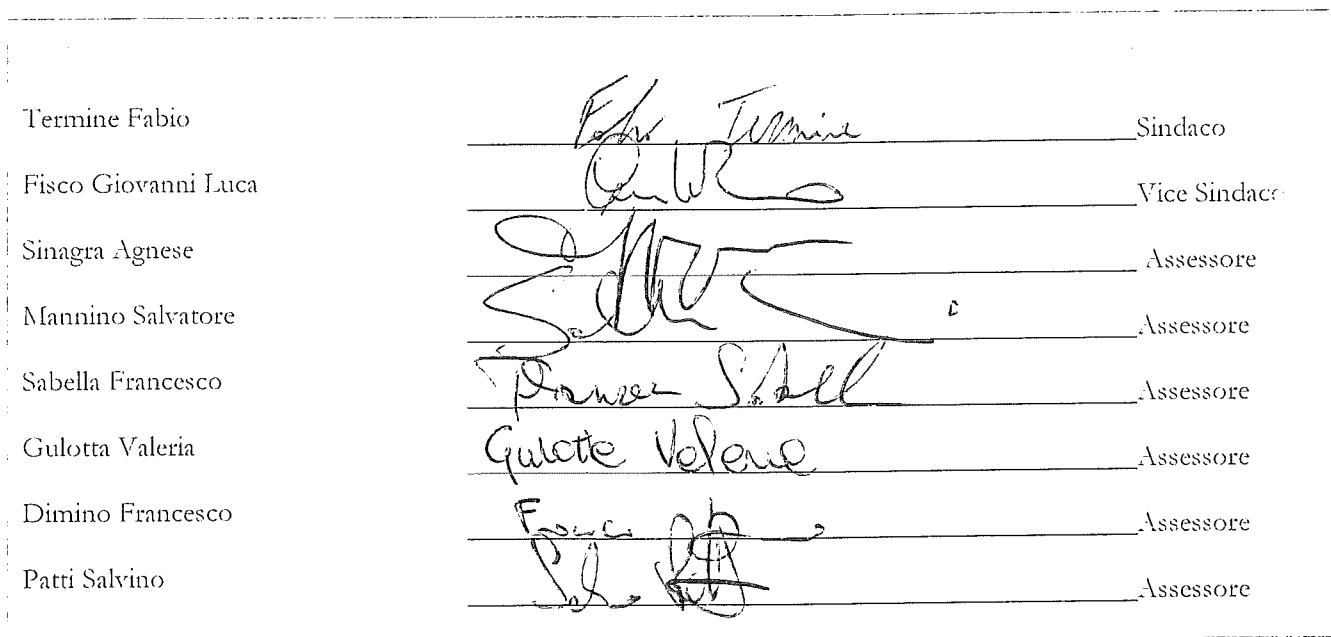 Termine Fabio Fabio Termine Sindaco
Fisco Giovanni Luca Vice Sindaco
Sinagra Agnese Assessore
Mannino Salvatore Assessore
Sabella Francesco Assessore
Gulotta Valeria Gulotta Valeria Assessore
Dimino Francesco Assessore
Patti Salvino Assessore